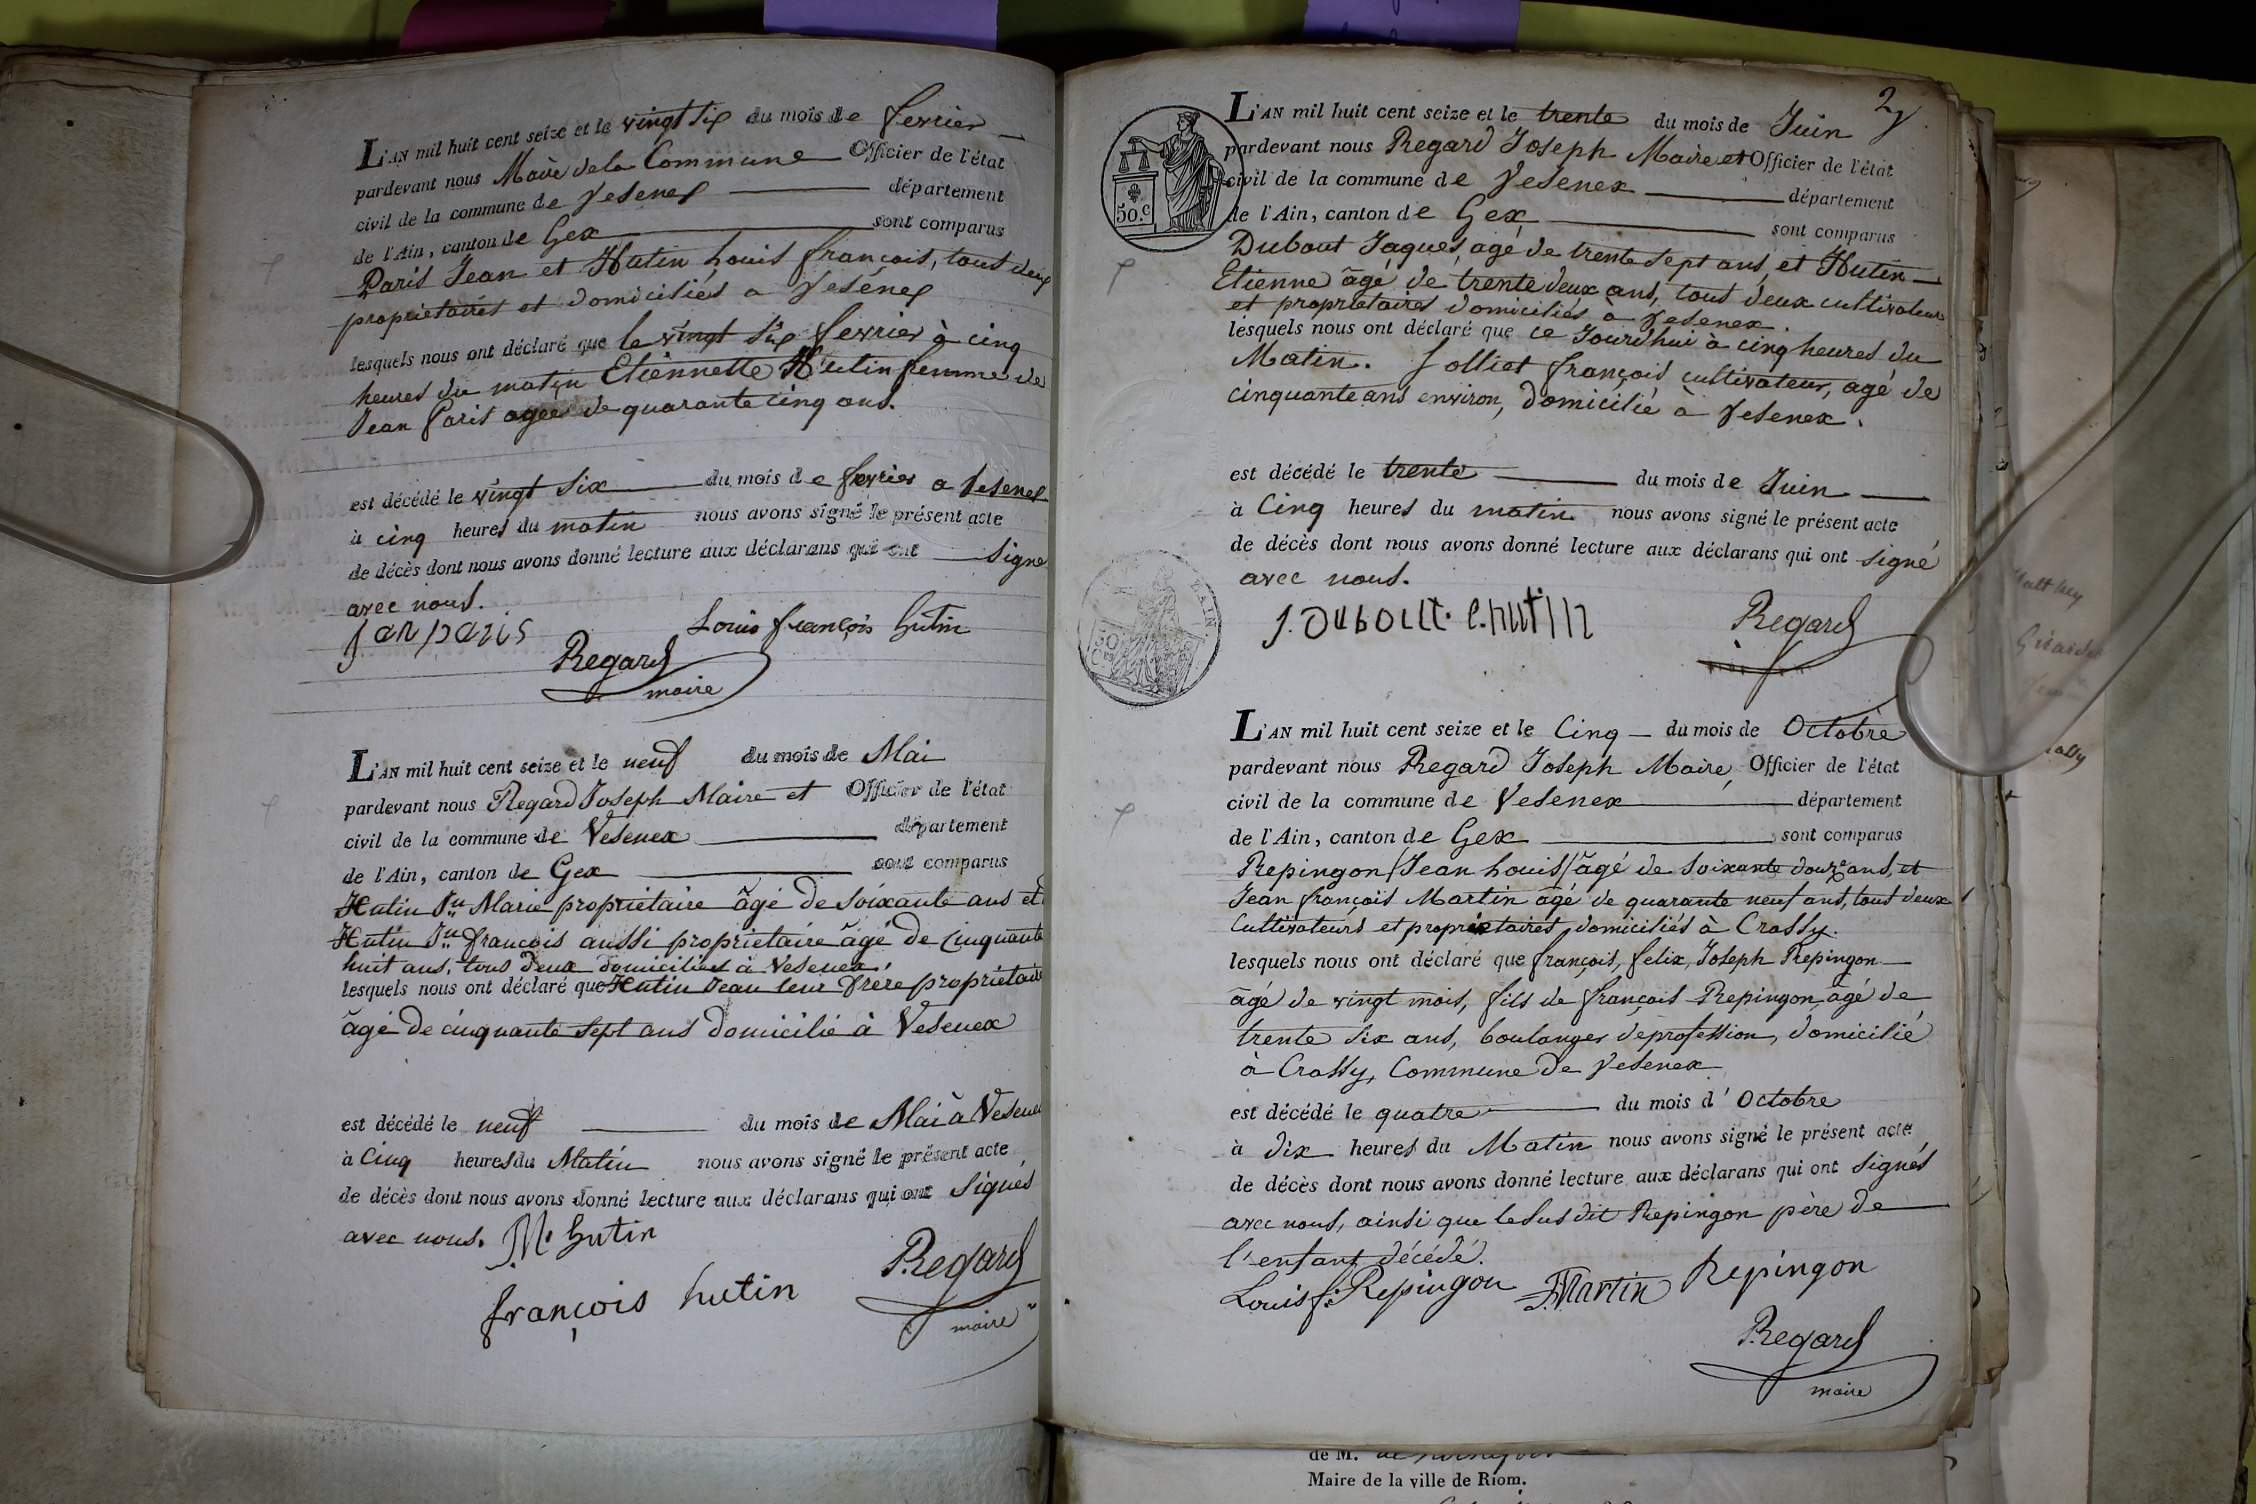 L'AN mil huit cent seize et le vingt six du mois de fevrier
pardevant nous Maire de la Commune Officier de l'état
civil de la commune de Vesenex département
de l'Ain, canton de Gex sont comparus
Paris Jean et Hutin Louis françois, tous deux
proprietaires et domiciliés a Vesénex
lesquels nous ont déclaré que le vingt six fevrier à cinq
heures du matin Etiennette Hutin femme de
Jean Paris agee de quarante cinq ans.
est décédé le vingt six du mois de fevrier a Vesenex
à cinq heures du matin nous avons signé le présent acte
de décès dont nous avons donné lecture aux déclarans qui ont signé
avec nous.
Jan paris Louis françois hutin
Regard
maire
L'AN mil huit cent seize et le neuf du mois de Mai
pardevant nous Regard Joseph Maire et Officier de l'état
civil de la commune de Vesenex département
de l'Ain, canton de Gex sont comparus
Hutin Jn Marie proprietaire âgé de soixante ans et
Hutin Jn françois aussi proprietaire âgé de cinquante
huit ans, tous deux domiciliés à Vesenex,
lesquels nous ont déclaré que Hutin Jean leur frère proprietaire
âgé de cinquante sept ans domicilié à Vesenex
est décédé le neuf du mois de Mai à Vesenex
à Cinq heures du Matin nous avons signé le présent acte
de décès dont nous avons donné lecture aux déclarans qui ont signés
avec nous. M. hutin
françois hutin Regard
maire
2
L'AN mil huit cent seize et le trente du mois de Juin
pardevant nous Regard Joseph Maire et Officier de l'état
civil de la commune de Vesenex département
50.c de l'Ain, canton de Gex sont comparus
Dubout Jaques, agé de trente sept ans, et Hutin
Etienne âgé de trente deux ans, tous deux cultivateurs
et proprietaires domiciliés à Vesenex.
lesquels nous ont déclaré que ce Jourd'hui à cinq heures du
Matin. Jolliet françois cultivateur, agé de
cinquante ans environ, domicilié à Vesenex.
est décédé le trente du mois de Juin
à Cinq heures du matin nous avons signé le présent acte
de décès dont nous avons donné lecture aux déclarans qui ont signé
avec nous.
J. Dubout. e. hutin Regard
L'AN mil huit cent seize et le Cinq du mois de Octobre
pardevant nous Regard Joseph Maire, Officier de l'état
civil de la commune de Vesenex département
de l'Ain, canton de Gex sont comparus
Repingon (Jean Louis) âgé de soixante douze ans, et
Jean françois Martin âgé de quarante neuf ans, tous deux
Cultivateurs et proprietaires, domiciliés à Crassy.
lesquels nous ont déclaré que françois, felix, Joseph Repingon
âgé de vingt mois, fils de françois Repingon, âgé de
trente six ans, boulanger de profession, domicilié
à Crassy, Commune de Vesenex
est décédé le quatre du mois d' Octobre
à dix heures du Matin nous avons signé le présent acte
de décès dont nous avons donné lecture aux déclarans qui ont signés
avec nous, ainsi que le susdit Repingon père de
l'enfant décédé.
Louis f. Repingon J. Martin Repingon
Regard
maire
de M.
Maire de la ville de Riom.